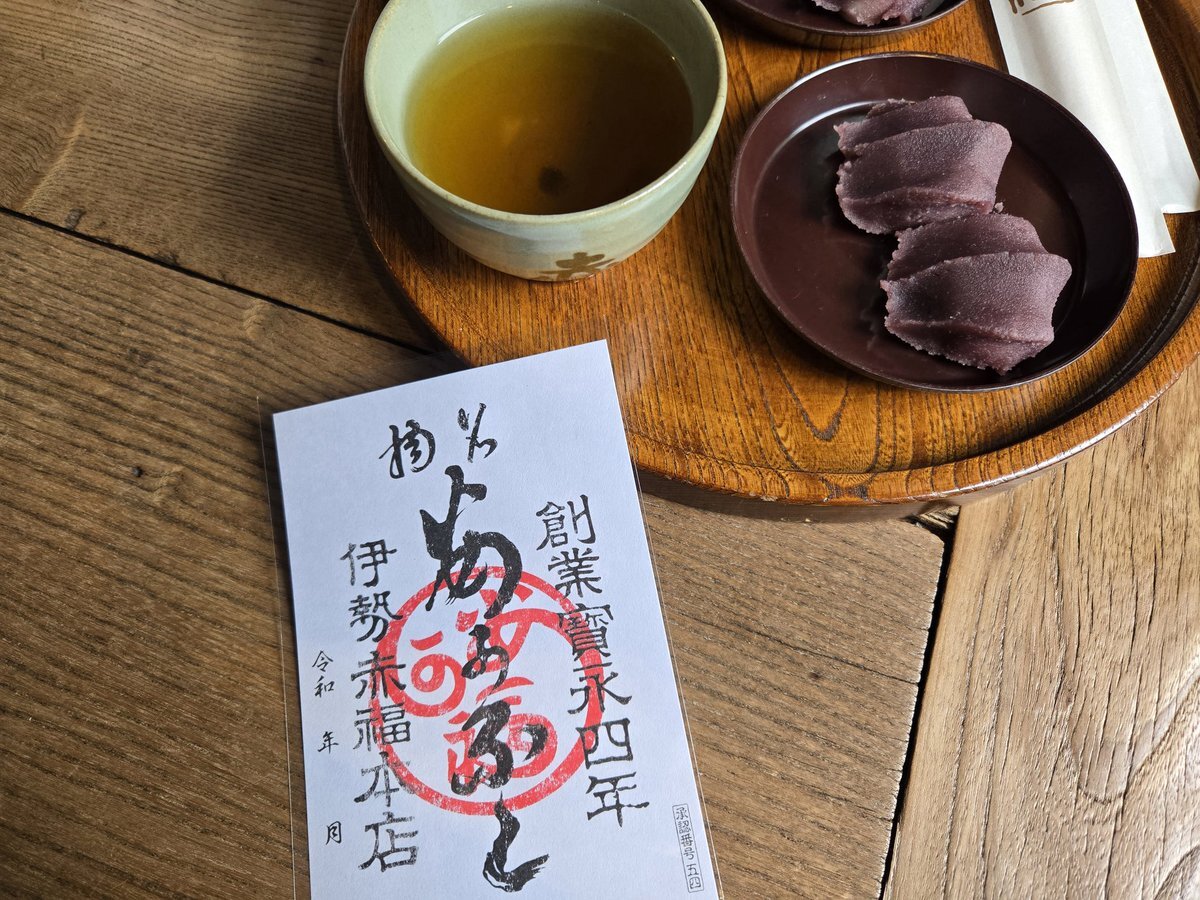 創業寶永四年
名物
伊勢赤福本店
令和 年 月
承認番号 五四